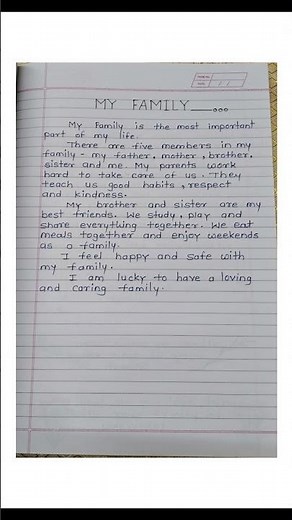 MY FAMILY
My Family is the most important
part of my life.
There are five members in my
family - my father, mother, brother,
sister and me. My parents work
hard to take care of us. They
teach us good habits, respect
and kindness.
My brother and sister are my
best friends. We study, play and
share everything together. We eat
meals together and enjoy weekends
as a family.
I feel happy and safe with
my family.
I am lucky to have a loving
and caring family.